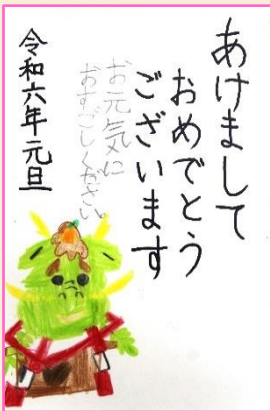 あけまして
おめでとう
ございます
お元気に
おすごしください。
令和六年元旦